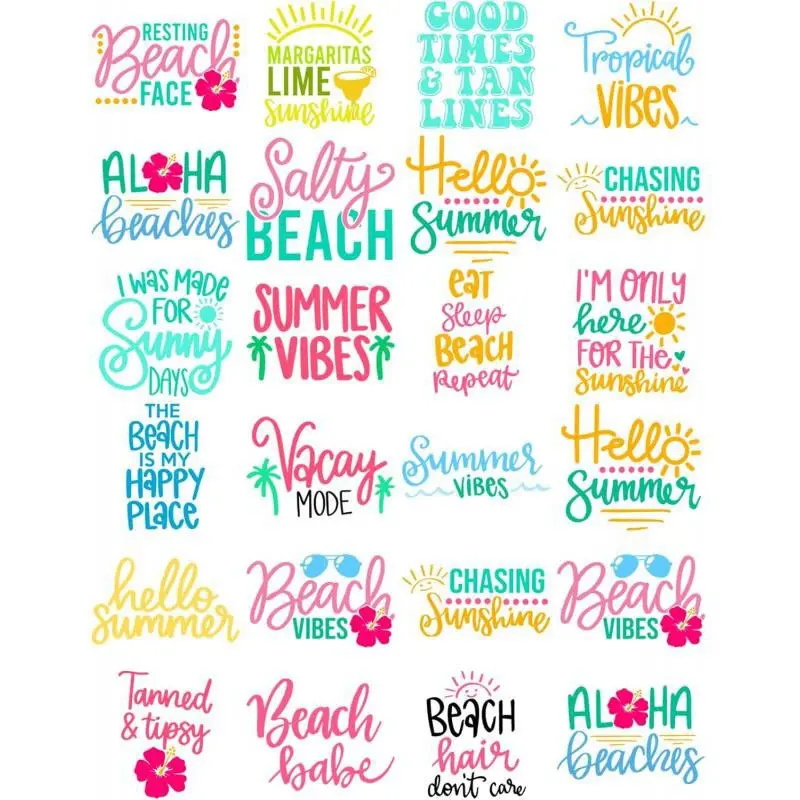 RESTING
Beach
FACE
MARGARITAS
LIME
Sunshine
GOOD
TIMES
& TAN
LINES
Tropical
VIBES
ALOHA
beaches
Salty
BEACH
Hello
Summer
CHASING
Sunshine
I WAS MADE
FOR
Sunny
DAYS
SUMMER
VIBES
EAT
Sleep
BEACH
repeat
I'M ONLY
here
FOR THE
Sunshine
THE
BEACH
IS MY
HAPPY
PLACE
Vacay
MODE
Summer
VIBES
Hello
Summer
hello
summer
Beach
VIBES
CHASING
Sunshine
Beach
VIBES
Tanned
& tipsy
Beach
babe
BEACH
hair
don't care
ALOHA
beaches